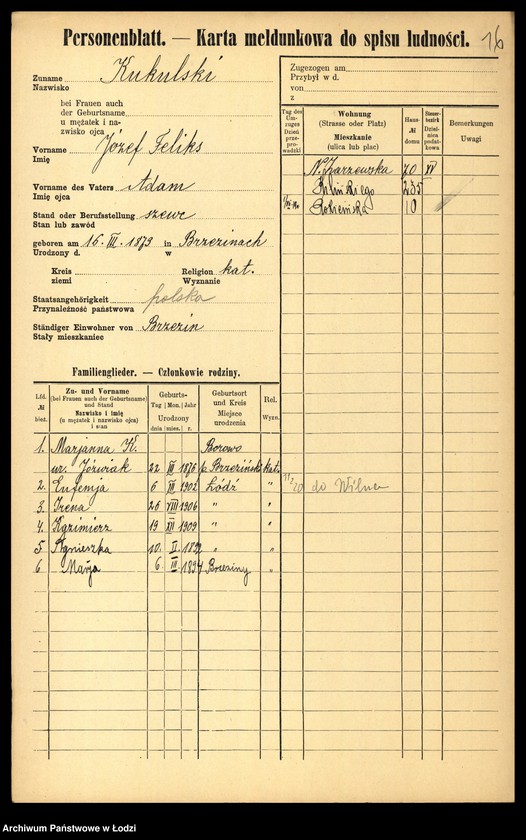 16
Personenblatt. — Karta meldunkowa do spisu ludności.
Zuname Kukulski
Nazwisko
bei Frauen auch
der Geburtsname
u mężatek i na-
zwisko ojca
Vorname Józef Feliks
Imię
Vorname des Vaters Adam
Imię ojca
Stand oder Berufsstellung szewc
Stan lub zawód
geboren am 16. III. 1873 in Brzezinach
Urodzony d. w
Kreis Religion kat.
ziemi Wyznanie
Staatsangehörigkeit polska
Przynależność państwowa
Ständiger Einwohner von Brzezin
Stały mieszkaniec
Zugezogen am
Przybył w d.
von
z
Tag des Um-zuges Dzień prze-prowadzki
Wohnung (Strasse oder Platz) Mieszkanie (ulica lub plac)
Haus- № domu
Steuer-bezirk Dziel-nica podat-kowa
Bemerkungen Uwagi
N. Zarzewska 70 XV
Kilińskiego 235
10
Familienglieder. — Członkowie rodziny.
Lfd. № bież.
Zu- und Vorname (bei Frauen auch der Geburtsname) und Stand Nazwisko i imię (u mężatek i nazwisko ojca) i stan
Geburts- Tag Mon. Jahr Urodzony dnia mies. r.
Geburtsort und Kreis Miejsce urodzenia
Rel. Wyzn.
1. Marjanna K. Borowo
ur. Józwiak 22 III 1876 p. Brzeziński kat.
2. Eufemja 6 1902 Łódź "
11/20 do Wilna
3. Irena 20 VIII 1906 " "
4. Kazimierz 19 XII 1909 " "
5 Agnieszka 10. II. " "
6 Marja 6 III 1894 Brzeziny "
Archiwum Państwowe w Łodzi